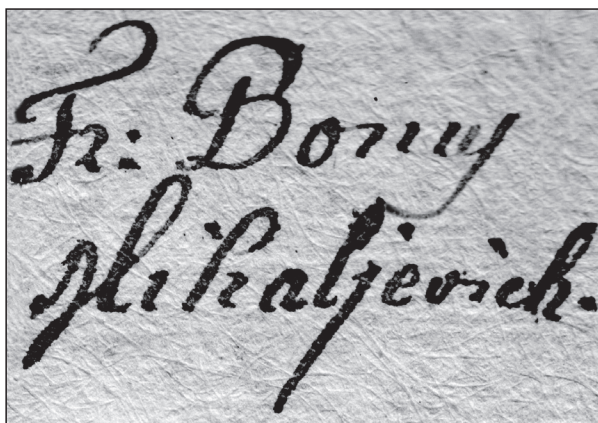 Fr: Bonny
Mihaljevich.